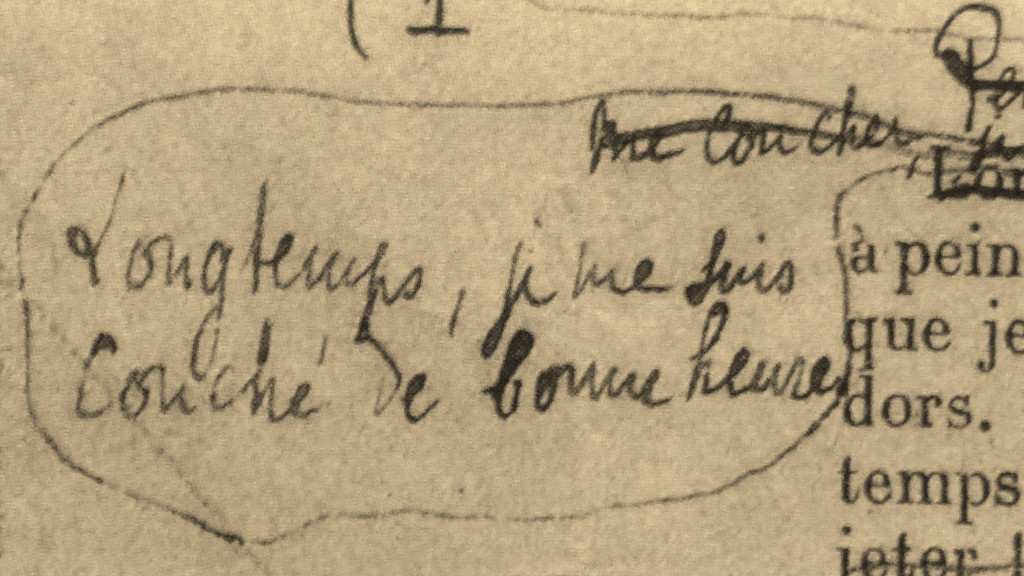 ( I
me coucher
Longtemps, je me suis
Couché de bonne heure
à pein
que je
dors.
temps
jeter